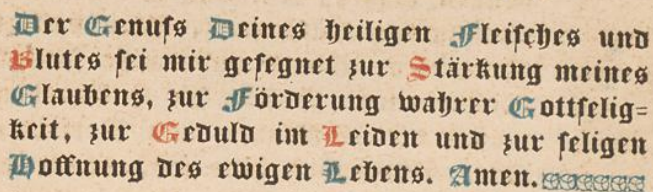 Der Genuſs Deines heiligen Fleiſches und
Blutes ſei mir geſegnet zur Stärkung meines
Glaubens, zur Förderung wahrer Gottſelig=
keit, zur Geduld im Leiden und zur ſeligen
Hoffnung des ewigen Lebens. Amen.